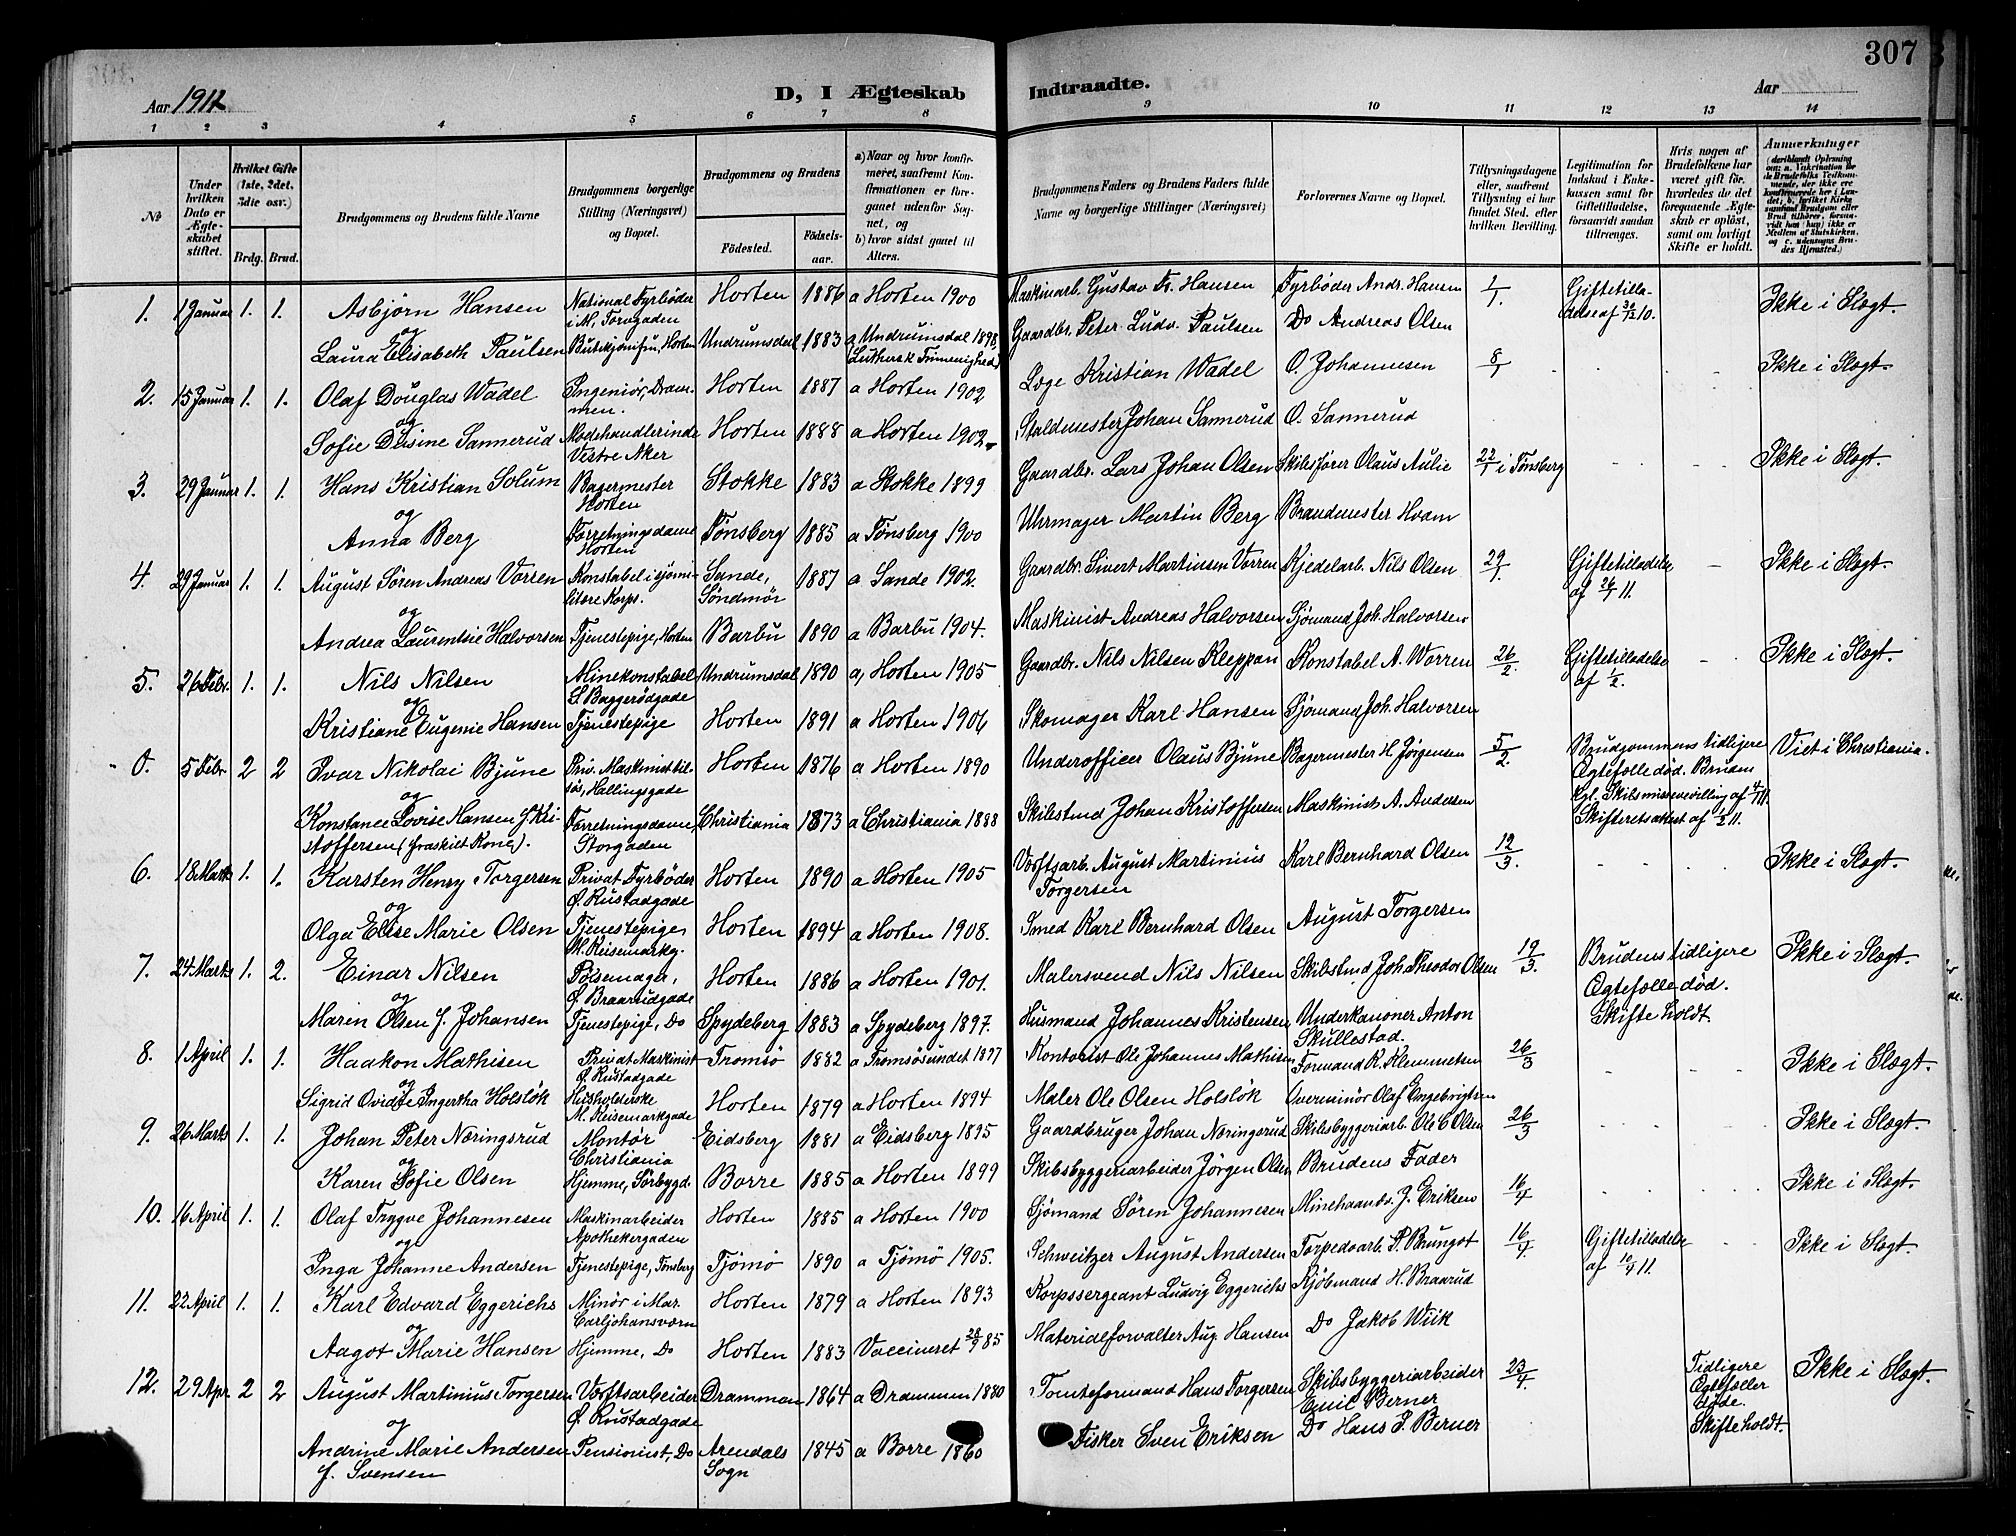 307
Aar 1911
D, I Ægteskab
Indtraadte.
Aar
1 2 3 4 5 6 7 8 9 10 11 12 13 14
No
Under hvilken Dato er Ægteskabet stiftet.
Hvilket Gifte (1ste, 2det, 3die osv.)
Brdg. Brud.
Brudgommens og Brudens fulde Navne
Brudgommens borgerlige Stilling (Næringsvei) og Bopæl.
Brudgommens og Brudens
Fødested.
Fødselsaar.
a) Naar og hvor konfirmeret, saafremt Konfirmationen er foregaaet udenfor Sognet, og
b) hvor sidst gaaet til Alters.
Brudgommens Faders og Brudens Faders fulde Navne og borgerlige Stillinger (Næringsvei)
Forlovernes Navne og Bopæl.
Tillysningsdagene eller, saafremt Tillysning ei har fundet Sted, efter hvilken Bevilling.
Legitimation for Indskud i Enkekassen samt for Giftetilladelse, forsaavidt saadan tiltrænges.
Hvis nogen af Brudefolkene har været gift før, hvorledes du det foregaaende Ægteskab er opløst, samt om lovligt Skifte er holdt.
Anmerkninger
1. 1 Januar 1. 1. Asbjørn Hansen National Fyrbøder i M, Torvgaden Horten 1886 a Horten 1900 Maskinarb. Gustav Fr. Hansen Fyrbøder Andr. Hansen 1/1 Giftetilladelse af 31/12 10. Ikke i Slægt.
og
Laura Elisabeth Paulsen Butikjomfru, Horten Undrumsdal 1883 a Undrumsdal 1898 (Luthersk Frimenighed) Gaardbr. Peter Ludv. Paulsen Do Andreas Olsen
2. 15 Januar 1. 1. Olaf Douglas Wadel Ingeniør, Drammen. Horten 1887 a Horten 1902 Læge Kristian Wadel O. Johannesen 8/1 Ikke i Slægt.
og
Sofie Dusine Sannerud Modehandlerinde Vestre Aker Horten 1888 a Horten 1902 Staldmester Johan Sannerud O. Sannerud
3. 29 Januar 1. 1. Hans Kristian Solum Bagermester Horten Stokke 1883 a Stokke 1899 Gaardbr. Lars Johan Olsen Skibsfører Olaus Aulie 22/1 i Tønsberg Ikke i Slægt.
og
Anna Berg Forretningsdame Horten Tønsberg 1885 a Tønsberg 1900 Uhrmager Martin Berg Brandmester Hvam
4. 29 Januar 1. 1. August Søren Andreas Vorren Konstabel i sjømilitære Korps. Sande, Søndmør 1887 a Sande 1902. Gaardbr. Sivert Martinsen Vorren Kjedelarb. Nils Olsen 29/1. Giftetilladelse af 26/1 11. Ikke i Slægt.
og
Andrea Laurentsie Halvorsen Tjenestepige, Horten Barbu 1890 a Barbu 1904. Maskinist Andreas Halvorsen Sjømand Joh. Halvorsen
5. 26 Febr. 1. 1. Nils Nilsen Minekonstabel L. Baggerødgade Undrumsdal 1890 a, Horten 1905 Gaardbr. Nils Nilsen Kleppan Konstabel A. Worren 26/2. Giftetilladelse af 1/2. Ikke i Slægt.
og
Kristiane Eugenie Hansen Tjenestepige Horten 1891 a Horten 1906 Skomager Karl Hansen Sjømand Joh. Halvorsen
0. 5 Febr. 2 2 Ivar Nikolai Bjune Priv. Maskinist tilsøs, Hallingsgade Horten 1876 a Horten 1890 Underofficer Olaus Bjune Bagermester H. Jørgensen 5/2. Brudgommens tidligere Ægtefælle død. Brudens Kgl. Skilsmissebevilling af Skifteretsattest af 1/2 11. Viet i Christiania.
og
Konstance Lovise Hansen f. Kristoffersen (fraskilt Kone). Forretningsdame, Storgaden Christiania 1873 a Christiania 1888 Skibstmd Johan Kristoffersen Maskinist A. Andersen
6. 18 Marts 1. 1. Karsten Henry Torgersen Privat Fyrbøder Ø. Rustadgade Horten 1890 a Horten 1905 Værftsarb. August Martinius Torgersen Karl Bernhard Olsen 12/3. Ikke i Slægt.
og
Olga Elise Marie Olsen Tjenestepige, M. Reisemarkg. Horten 1894 a Horten 1908. Smed Karl Bernhard Olsen August Torgersen
7. 24 Marts 1. 2. Einar Nilsen Pølsemager, Ø. Braarudgade Horten 1886 a Horten 1901. Malersvend Nils Nilsen Skibstmd Joh. Theodor Olsen 19/3. Brudens tidligere Ægtefælle død. Skifte holdt. Ikke i Slægt.
og
Maren Olsen f. Johansen Tjenestepige, Do Spydeberg 1883 a Spydeberg 1897. Husmand Johannes Kristensen Underkanoner Anton Skullestad.
8. 1 April 1. 1. Haakon Mathisen Privat Maskinist Ø. Rustadgade Tromsø 1882 a Tromsøsundet 1897 Kontorist Ole Johannes Mathisen Formand K. Klemmetsen 26/3 Ikke i Slægt.
og
Sigrid Ovidie Ingertha Holsløk Husholderske M. Reisemarkgade Horten 1879 a Horten 1894 Maler Ole Olsen Holsløk Overminør Olaf Engebrigtsen
9. 26 Marts 1. 1. Johan Peter Næringsrud Montør Christiania Eidsberg 1881 a Eidsberg 1895 Gaardbruger Johan Næringsrud Skibsbyggeriarb. Ole C. Olsen 26/3 Ikke i Slægt.
og
Karen Sofie Olsen Hjemme, Sørbygd. Borre 1885 a Horten 1899 Skibsbyggeriarbeider Jørgen Olsen Brudens Fader
10. 16 April 1. 1. Olaf Trygve Johannesen Maskinarbeider Apothekergaden Horten 1885 a Horten 1900 Sjømand Søren Johannesen Minehaandv. J. Eriksen 16/4 Ikke i Slægt.
og
Inga Johanne Andersen Tjenestepige, Tønsberg Tjømø 1890 a Tjømø 1905. Schweitzer August Andersen Torpedoarb. P. Brungot
11. 22 April 1. 1. Karl Edvard Eggerichs Minør i Mar. Carljohansværn Horten 1879 a Horten 1893 Korpssergeant Ludvig Eggerichs Kjøbmand H. Braarud 16/4 Giftetilladelse af 10/4 11. Ikke i Slægt.
og
Aagot Marie Hansen Hjemme, Do Horten 1883 Vaccineret 28/9 85 Materialforvalter Aug. Hansen Do Jakob Wiik
12. 29 Apr. 2 2 August Martinius Torgersen Værftsarbeider Ø. Rustadgade Drammen 1864 a Drammen 1880 Tomteformand Hans Torgersen Skibsbyggeriarbeider Emil Berner 23/4. Tidligere Ægtefæller døde. Skifte holdt. Ikke i Slægt.
og
Andrine Marie Andersen f. Svensen Pensionist, Do Arendals Sogn 1845 a Borre 1860 Fisker Sven Eriksen Do Hans P. Berner